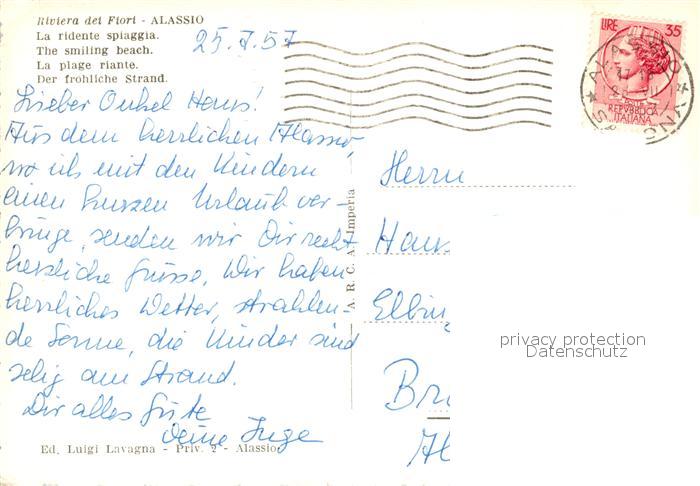 Riviera dei Fiori - ALASSIO
La ridente spiaggia.
The smiling beach.
La plage riante.
Der fröhliche Strand.
25.7.57
LIRE 35
REPVBBLICA
ITALIANA
Lieber Onkel Hans!
Aus dem herrlichen Alassio,
wo ich mit den Kindern
einen kurzen Urlaub ver-
bringe, senden wir Dir recht
herzliche Grüsse. Wir haben
herrliches Wetter, strahlen-
de Sonne, die Kinder sind
selig am Strand.
Dir alles Gute
Deine Inge
A. R. C. A. Imperia
Herrn
Hans
Elbin
Br
privacy protection
Datenschutz
Ed. Luigi Lavagna - Priv. 2 - Alassio